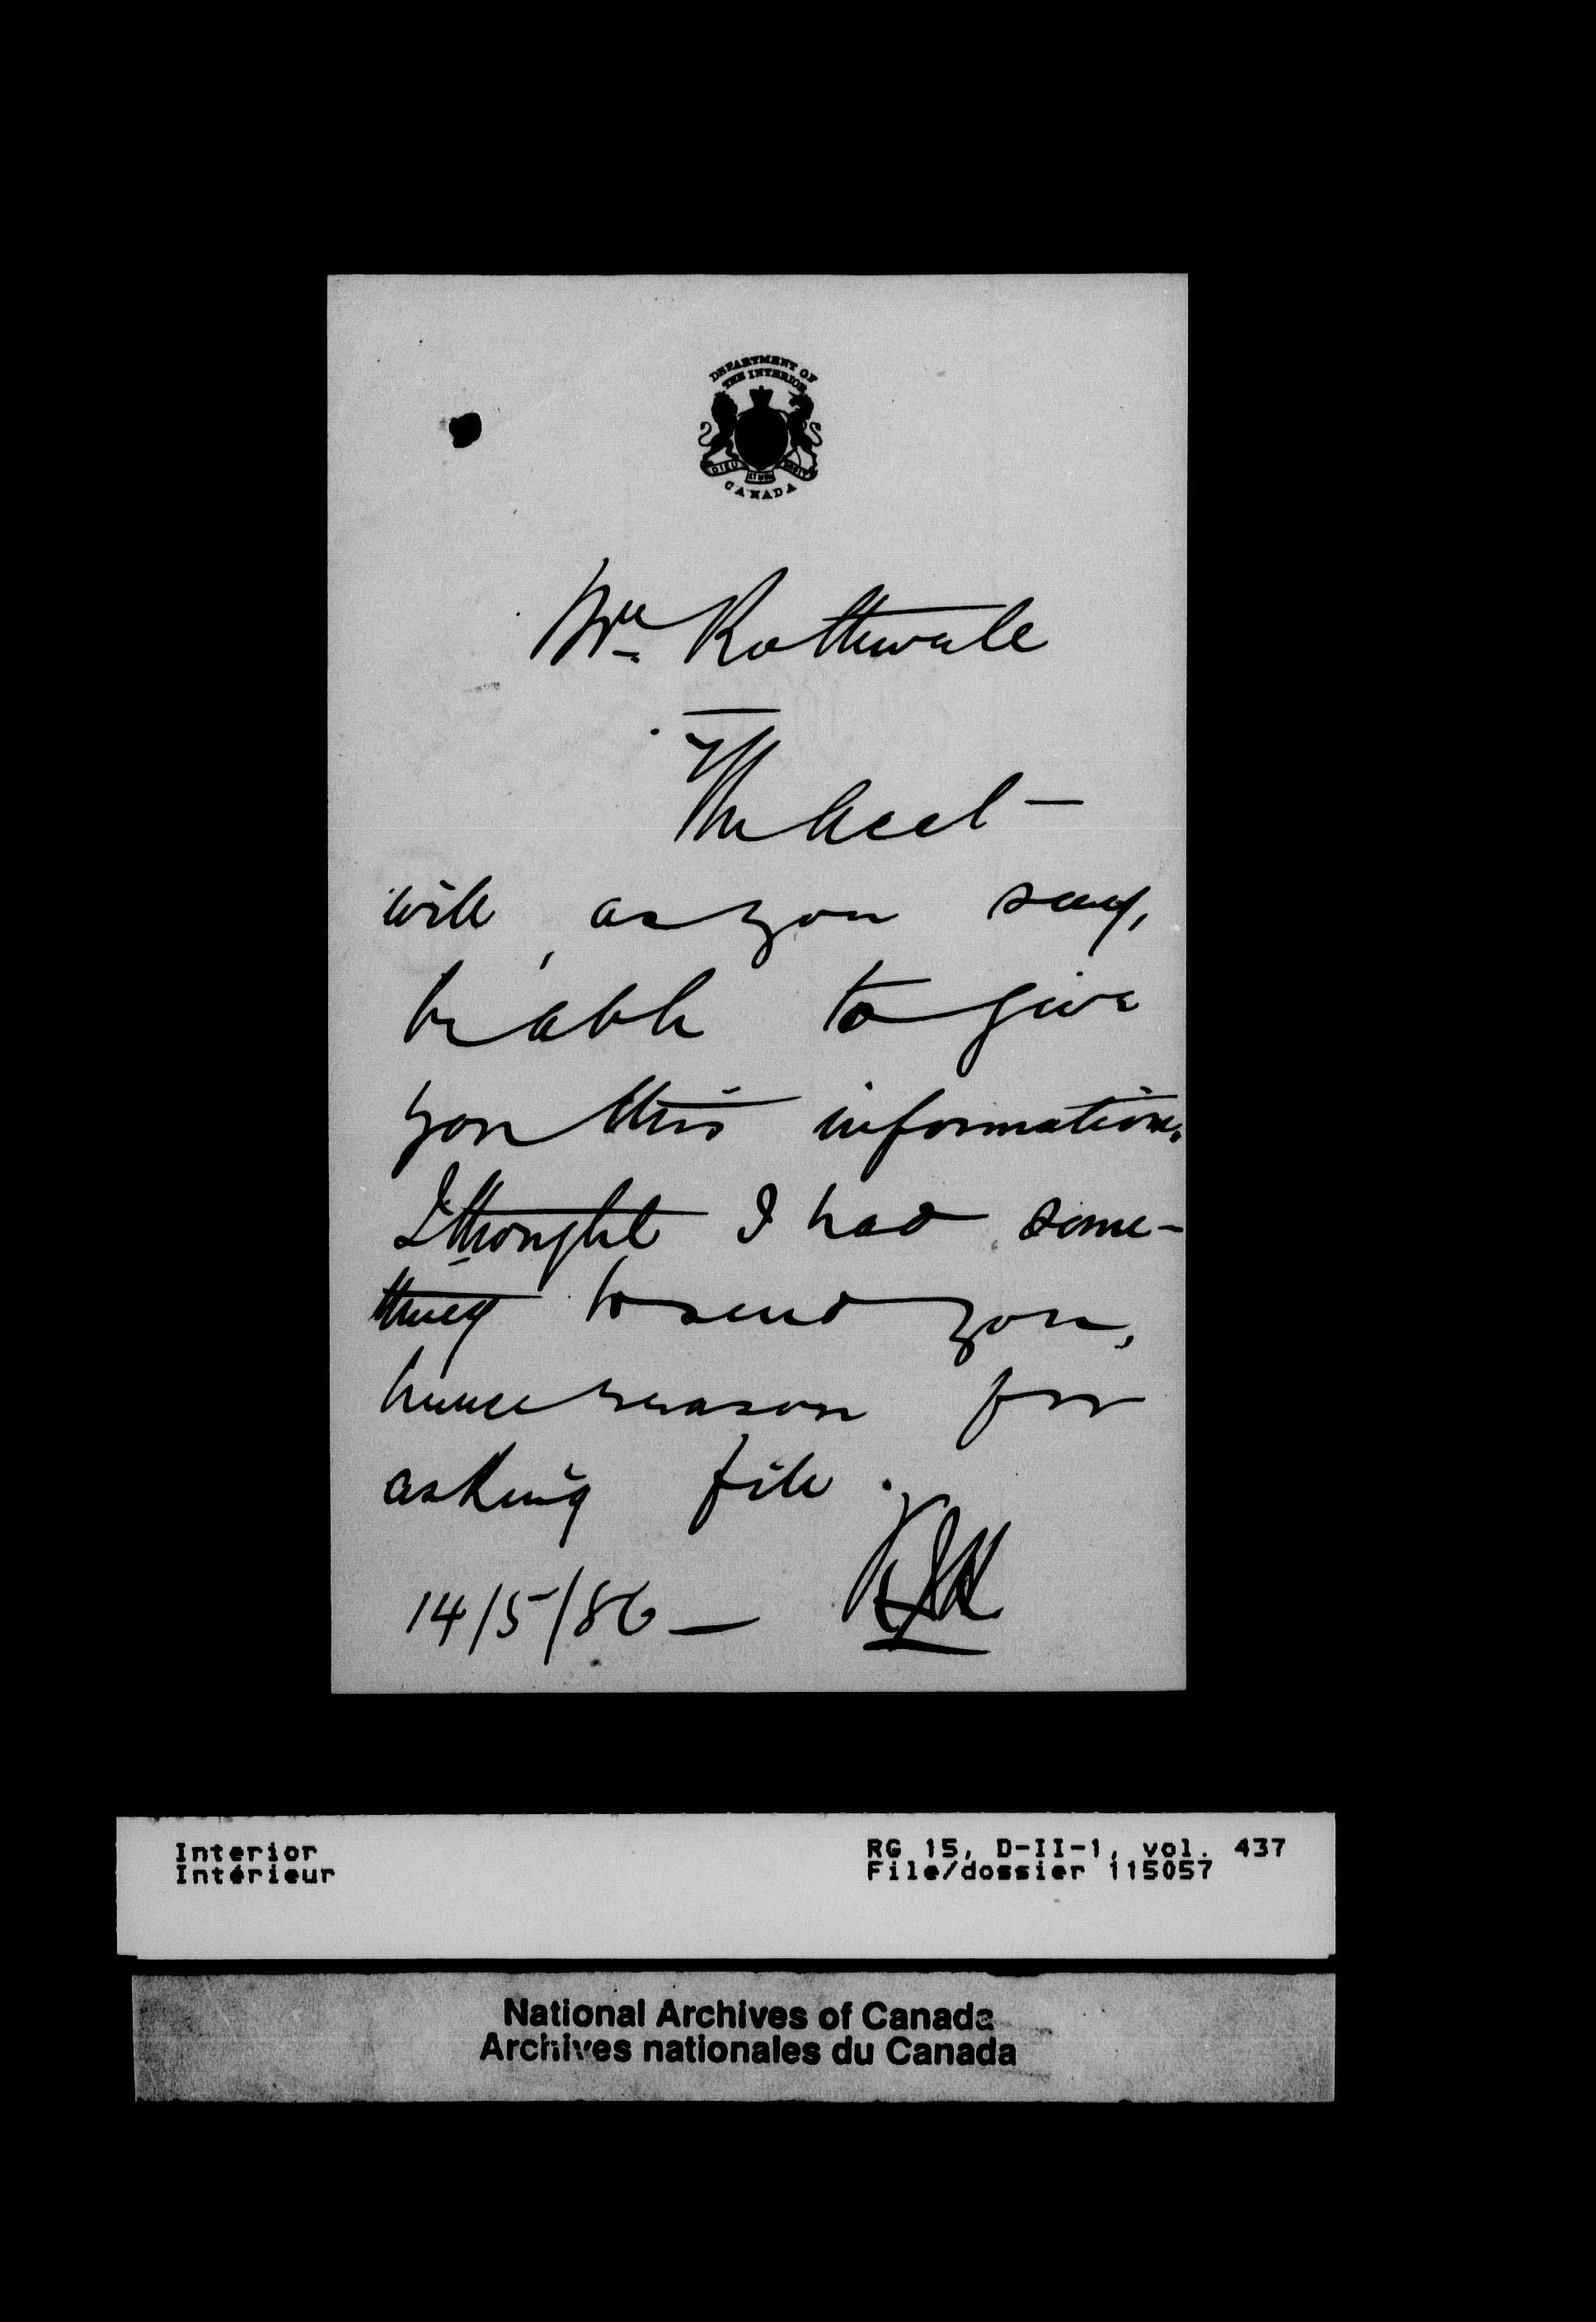 DEPARTMENT OF
THE INTERIOR
DIEU ET MON DROIT
CANADA
Mr. Rothwell
The Acct —
will, as you say,
be able to give
you this information.
I thought I had some-
thing to send you,
hence reason for
asking file.
14/5/86 —
Interior
Intérieur
RG 15, D-II-1, vol. 437
File/dossier 115057
National Archives of Canada
Archives nationales du Canada